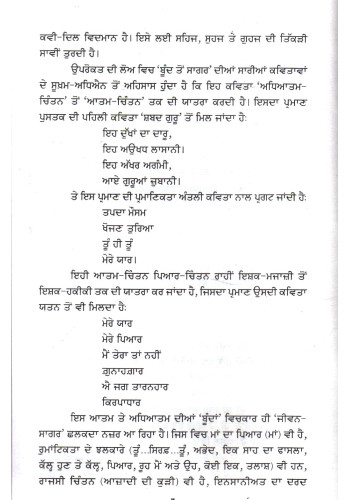 ਕਵੀ-ਦਿਲ ਵਿਦਮਾਨ ਹੈ। ਇਸੇ ਲਈ ਸਹਿਜ, ਸੁਹਜ ਤੇ ਗੁਹਜ ਦੀ ਤਿੱਕੜੀ
ਸਾਵੀਂ ਤੁਰਦੀ ਹੈ।
ਉਪਰੋਕਤ ਦੀ ਲੋਅ ਵਿਚ ‘ਬੂੰਦ ਤੋਂ ਸਾਗਰ’ ਦੀਆਂ ਸਾਰੀਆਂ ਕਵਿਤਾਵਾਂ
ਦੇ ਸੂਖ਼ਮ-ਅਧਿਐਨ ਤੋਂ ਅਹਿਸਾਸ ਹੁੰਦਾ ਹੈ ਕਿ ਇਹ ਕਵਿਤਾ ‘ਅਧਿਆਤਮ-
ਚਿੰਤਨ’ ਤੋਂ ‘ਆਤਮ-ਚਿੰਤਨ’ ਤਕ ਦੀ ਯਾਤਰਾ ਕਰਦੀ ਹੈ। ਇਸਦਾ ਪ੍ਰਮਾਣ
ਪੁਸਤਕ ਦੀ ਪਹਿਲੀ ਕਵਿਤਾ ‘ਸ਼ਬਦ ਗੁਰੂ’ ਤੋਂ ਮਿਲ ਜਾਂਦਾ ਹੈ:
ਇਹ ਦੁੱਖਾਂ ਦਾ ਦਾਰੂ,
ਇਹ ਅਉਖਧ ਲਾਸਾਨੀ।
ਇਹ ਅੱਖਰ ਅਗੰਮੀ,
ਆਏ ਗੁਰੂਆਂ ਜ਼ੁਬਾਨੀ।
ਤੇ ਇਸ ਪ੍ਰਮਾਣ ਦੀ ਪ੍ਰਮਾਣਿਕਤਾ ਅੰਤਲੀ ਕਵਿਤਾ ਨਾਲ ਪ੍ਰਗਟ ਜਾਂਦੀ ਹੈ:
ਤਪਦਾ ਮੌਸਮ
ਖੋਜਣ ਤੁਰਿਆ
ਤੂੰ ਹੀ ਤੂੰ
ਮੇਰੇ ਯਾਰ।
ਇਹੀ ਆਤਮ-ਚਿੰਤਨ ਪਿਆਰ-ਚਿੰਤਨ ਰਾਹੀਂ ਇਸ਼ਕ-ਮਜਾਜ਼ੀ ਤੋਂ
ਇਸ਼ਕ-ਹਕੀਕੀ ਤਕ ਦੀ ਯਾਤਰਾ ਕਰ ਜਾਂਦਾ ਹੈ, ਜਿਸਦਾ ਪ੍ਰਮਾਣ ਉਸਦੀ ਕਵਿਤਾ
ਯਤਨ ਤੋਂ ਵੀ ਮਿਲਦਾ ਹੈ:
ਮੇਰੇ ਯਾਰ
ਮੇਰੇ ਪਿਆਰ
ਮੈਂ ਤੇਰਾ ਤਾਂ ਨਹੀਂ
ਗੁਨਾਹਗ਼ਾਰ
ਐ ਜਗ ਤਾਰਨਹਾਰ
ਕਿਰਪਾਧਾਰ
ਇਸ ਆਤਮ ਤੇ ਅਧਿਆਤਮ ਦੀਆਂ ‘ਬੂੰਦਾਂ’ ਵਿਚਕਾਰ ਹੀ ‘ਜੀਵਨ-
ਸਾਗਰ’ ਛਲਕਦਾ ਨਜ਼ਰ ਆ ਰਿਹਾ ਹੈ। ਜਿਸ ਵਿਚ ਮਾਂ ਦਾ ਪਿਆਰ (ਮਾਂ) ਵੀ ਹੈ,
ਰੁਮਾਂਟਿਕਤਾ ਦੇ ਝਲਕਾਰੇ (ਤੂੰ...ਸਿਰਫ਼...ਤੂੰ, ਅਭੇਦ, ਇਕ ਸਾਹ ਦਾ ਫਾਸਲਾ,
ਕੱਲ੍ਹ ਹੁਣ ਤੇ ਕੱਲ੍ਹ, ਪਿਆਰ, ਰੂਹ ਮੈਂ ਅਤੇ ਉਹ, ਕੋਈ ਇਕ, ਤਲਾਸ਼) ਵੀ ਹਨ,
ਰਾਜਸੀ ਚਿੰਤਨ (ਆਜ਼ਾਦੀ ਦੀ ਕੁੜੀ) ਵੀ ਹੈ, ਇਨਸਾਨੀਅਤ ਦਾ ਦਰਦ